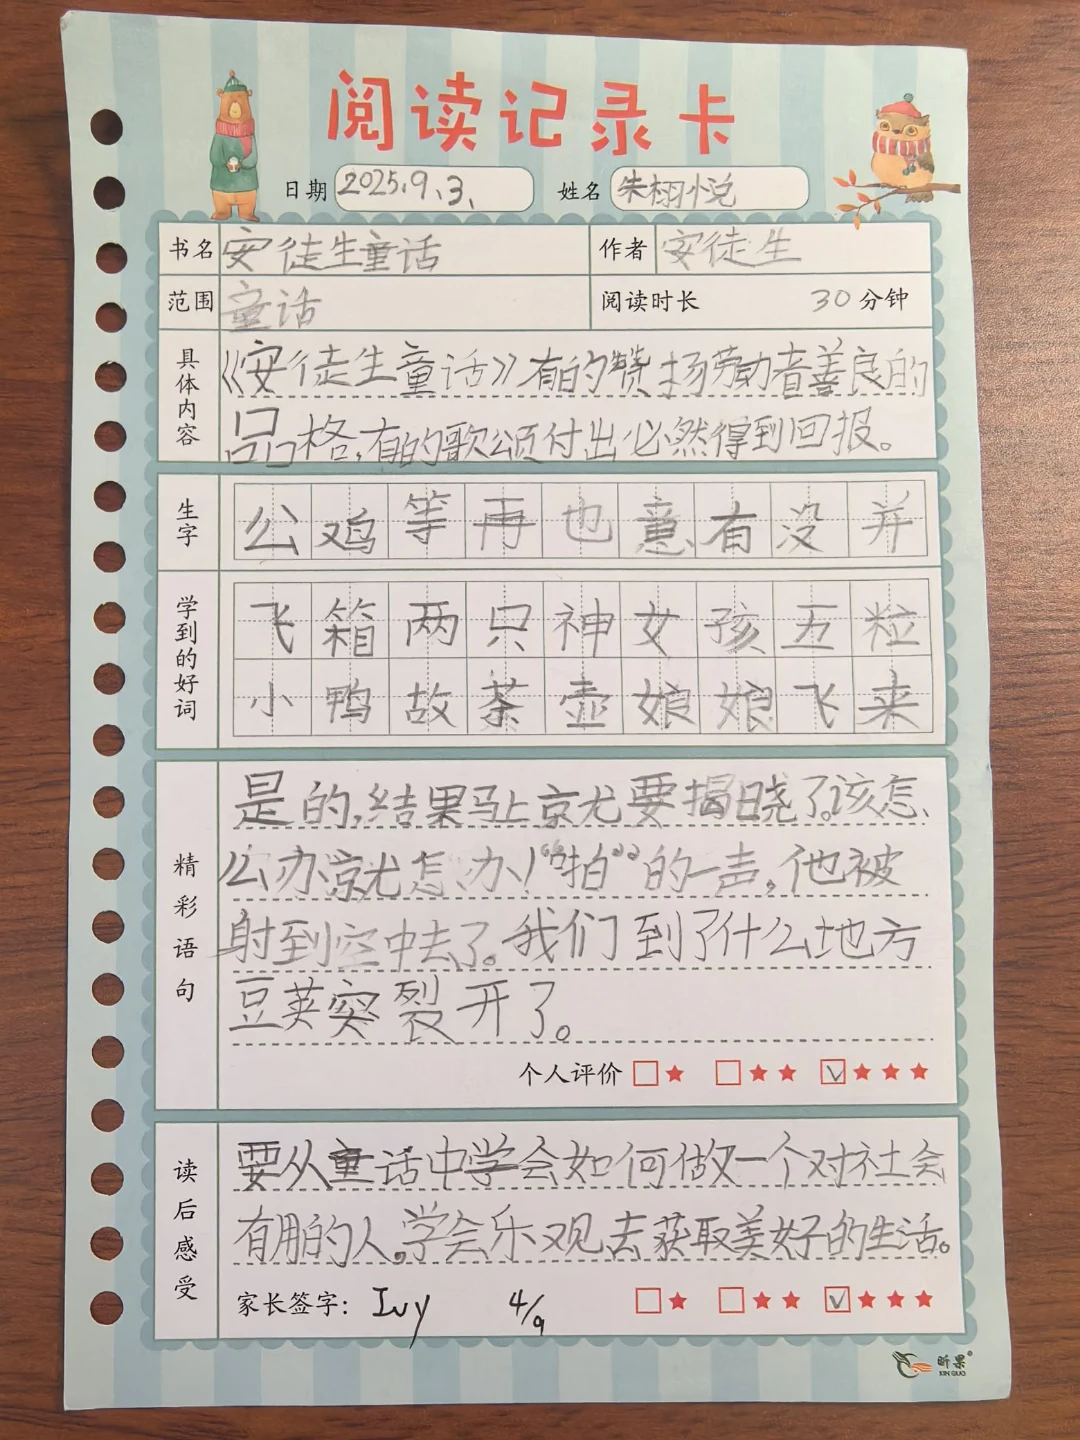 阅读记录卡
日期 2025.9.3. 姓名 朱栩悦
书名 安徒生童话 作者 安徒生
范围 童话 阅读时长 30分钟
具体内容
《安徒生童话》有的赞扬劳动者善良的
品格,有的歌颂付出必然得到回报。
生字
公鸡等再也意有没并
学到的好词
飞箱两只神女孩五粒
小鸭故茶壶娘娘飞来
精彩语句
是的,结果马上就要揭晓了。该怎
么办就怎办!“啪”的一声,他被
射到空中去了。我们到了什么地方
豆荚突裂开了。
个人评价 □★ □★★ ☑★★★
读后感受
要从童话中学会如何做一个对社会
有用的人。学会乐观去获取美好的生活。
家长签字: Ivy 4/9 □★ □★★ ☑★★★
昕果®
XIN GUO